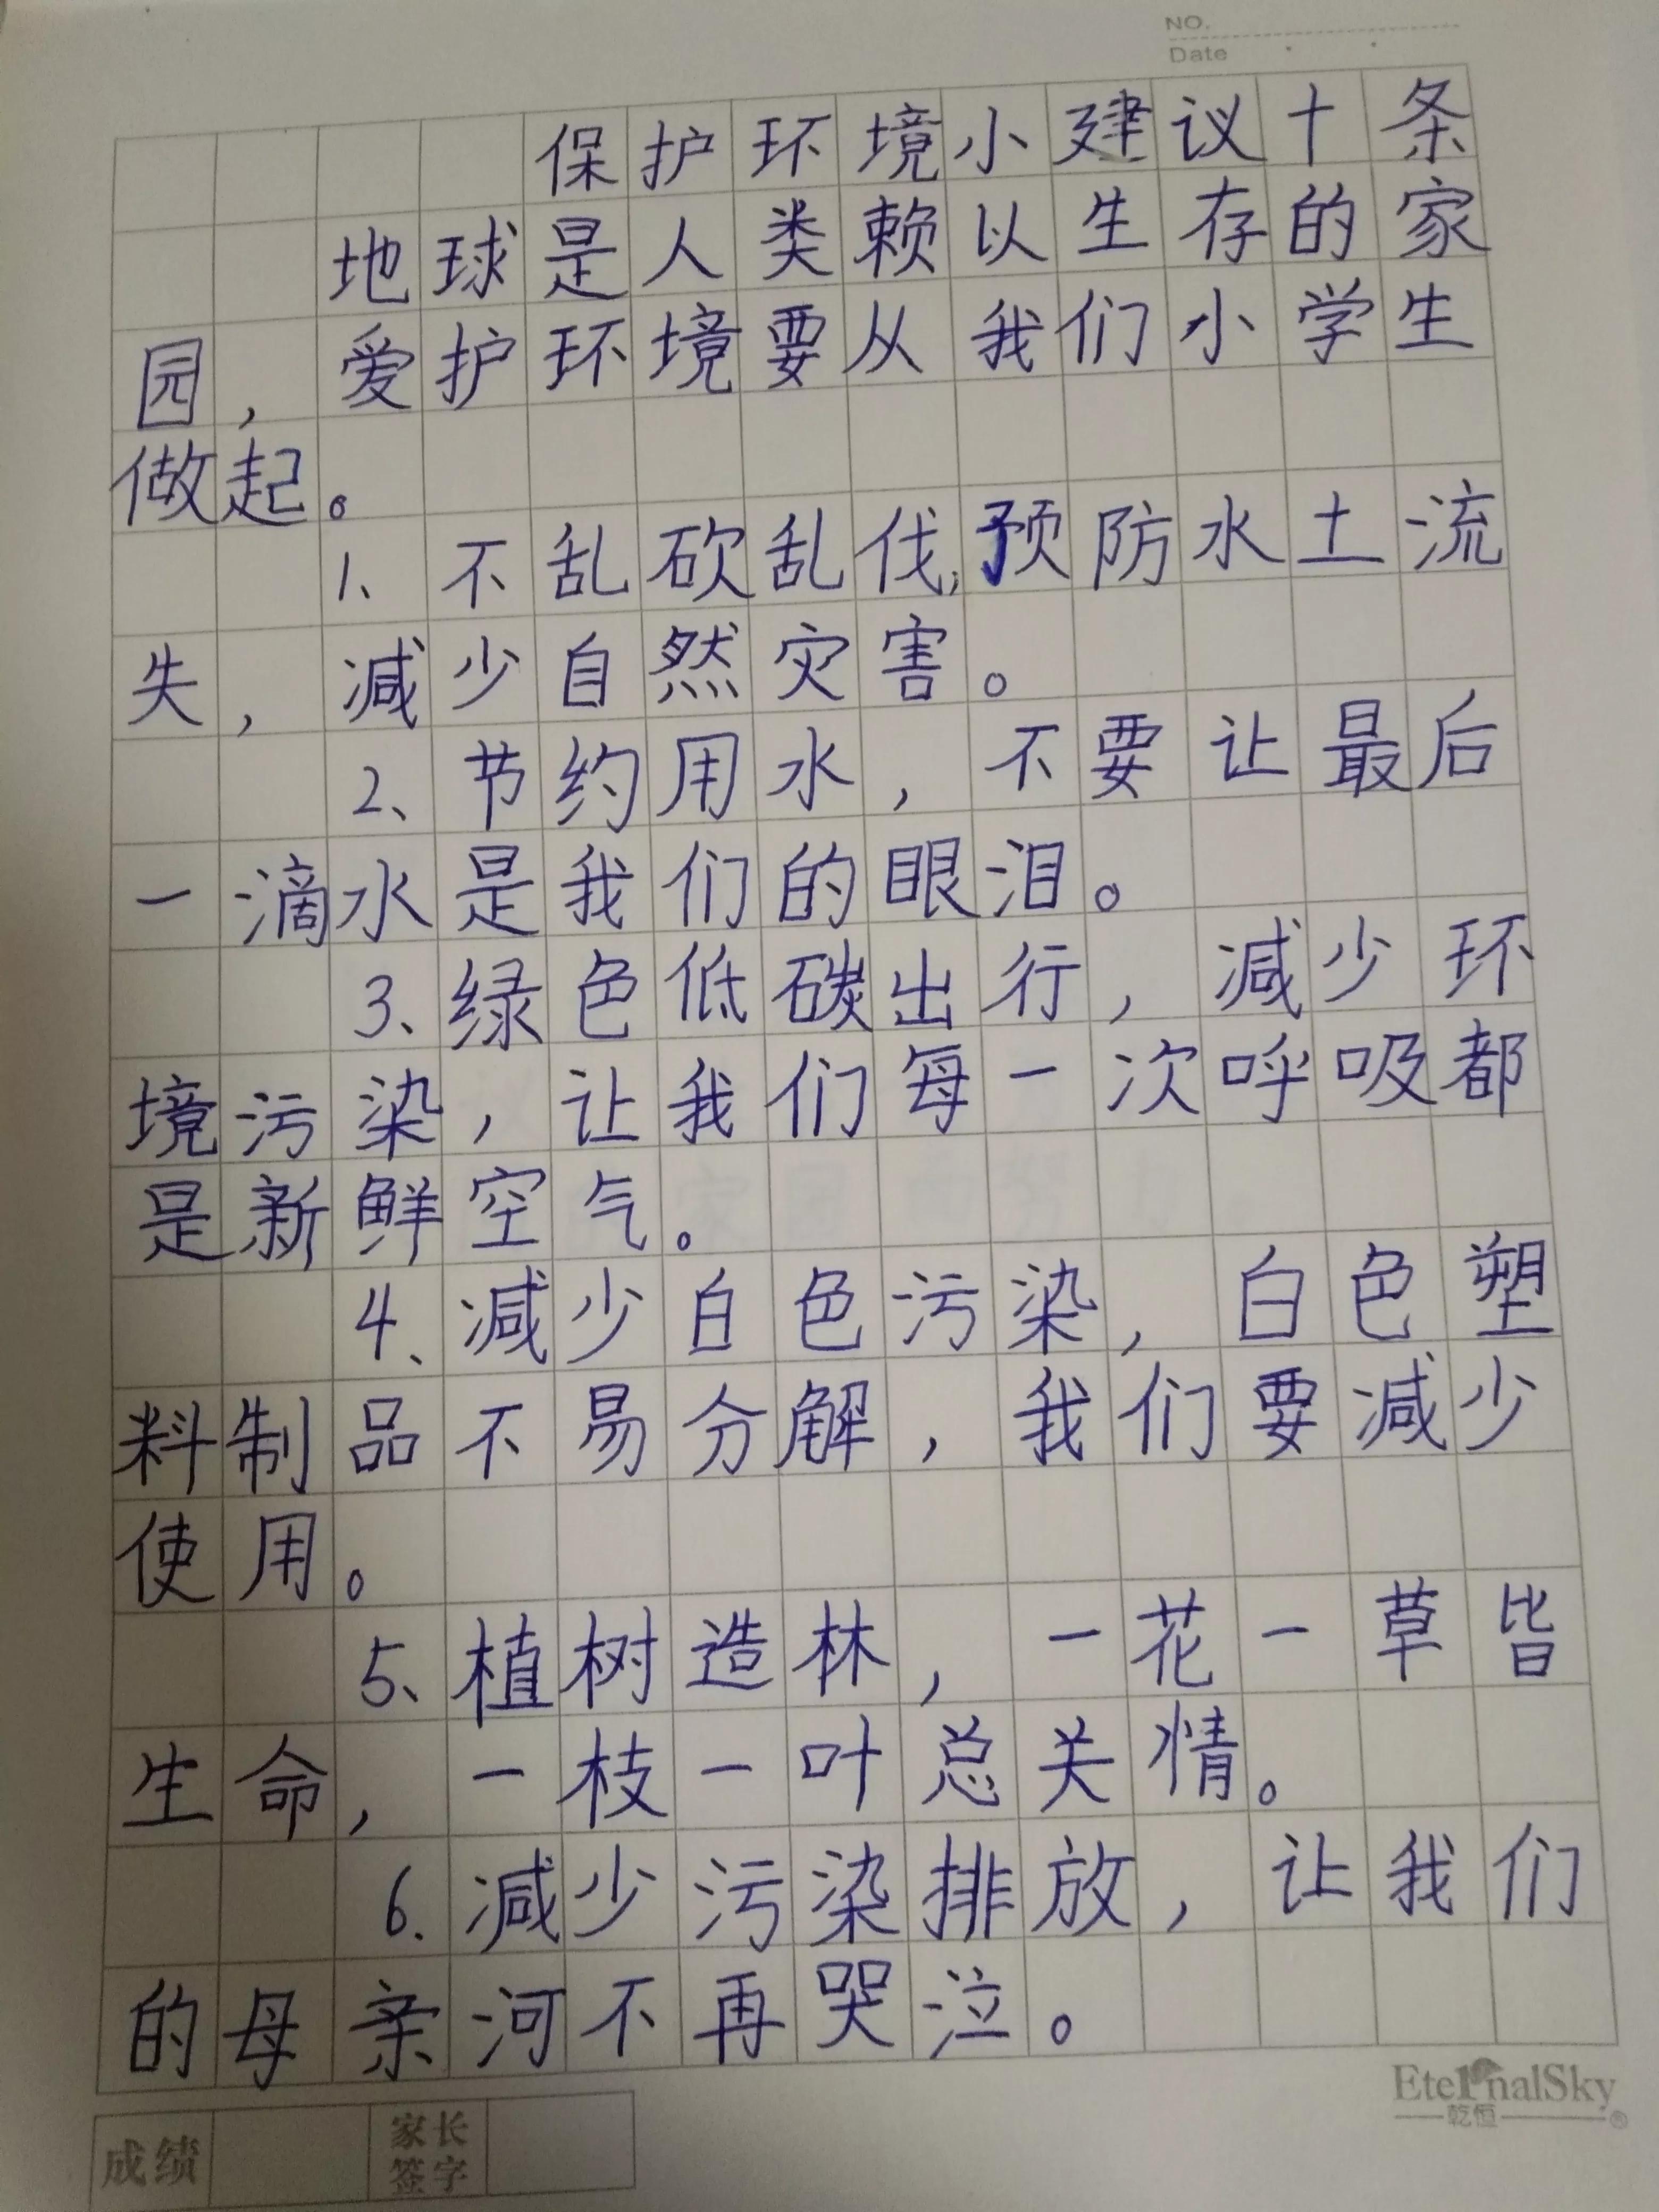 NO.
Date
保护环境小建议十条
地球是人类赖以生存的家
园，爱护环境要从我们小学生
做起。
1、不乱砍乱伐，预防水土流
失，减少自然灾害。
2、节约用水，不要让最后
一滴水是我们的眼泪。
3、绿色低碳出行，减少环
境污染，让我们每一次呼吸都
是新鲜空气。
4、减少白色污染，白色塑
料制品不易分解，我们要减少
使用。
5、植树造林，一花一草皆
生命，一枝一叶总关情。
6.减少污染排放，让我们
的母亲河不再哭泣。
EternalSky
乾恒
®
成绩
家长
签字